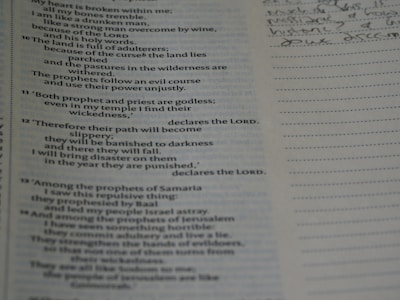 My heart is broken within me;
all my bones tremble.
I am like a drunken man,
like a strong man overcome by wine,
because of the LORD
and his holy words.
10 The land is full of adulterers;
because of the curse the land lies
parched
and the pastures in the wilderness are
withered.
The prophets follow an evil course
and use their power unjustly.
11 "Both prophet and priest are godless;
even in my temple I find their
wickedness,"
declares the LORD.
12 "Therefore their path will become
slippery;
they will be banished to darkness
and there they will fall.
I will bring disaster on them
in the year they are punished,"
declares the LORD.
13 "Among the prophets of Samaria
I saw this repulsive thing:
they prophesied by Baal
and led my people Israel astray.
14 And among the prophets of Jerusalem
I have seen something horrible:
they commit adultery and live a lie.
They strengthen the hands of evildoers,
so that not one of them turns from
their wickedness.
They are all like Sodom to me;
the people of Jerusalem are like
Gomorrah."